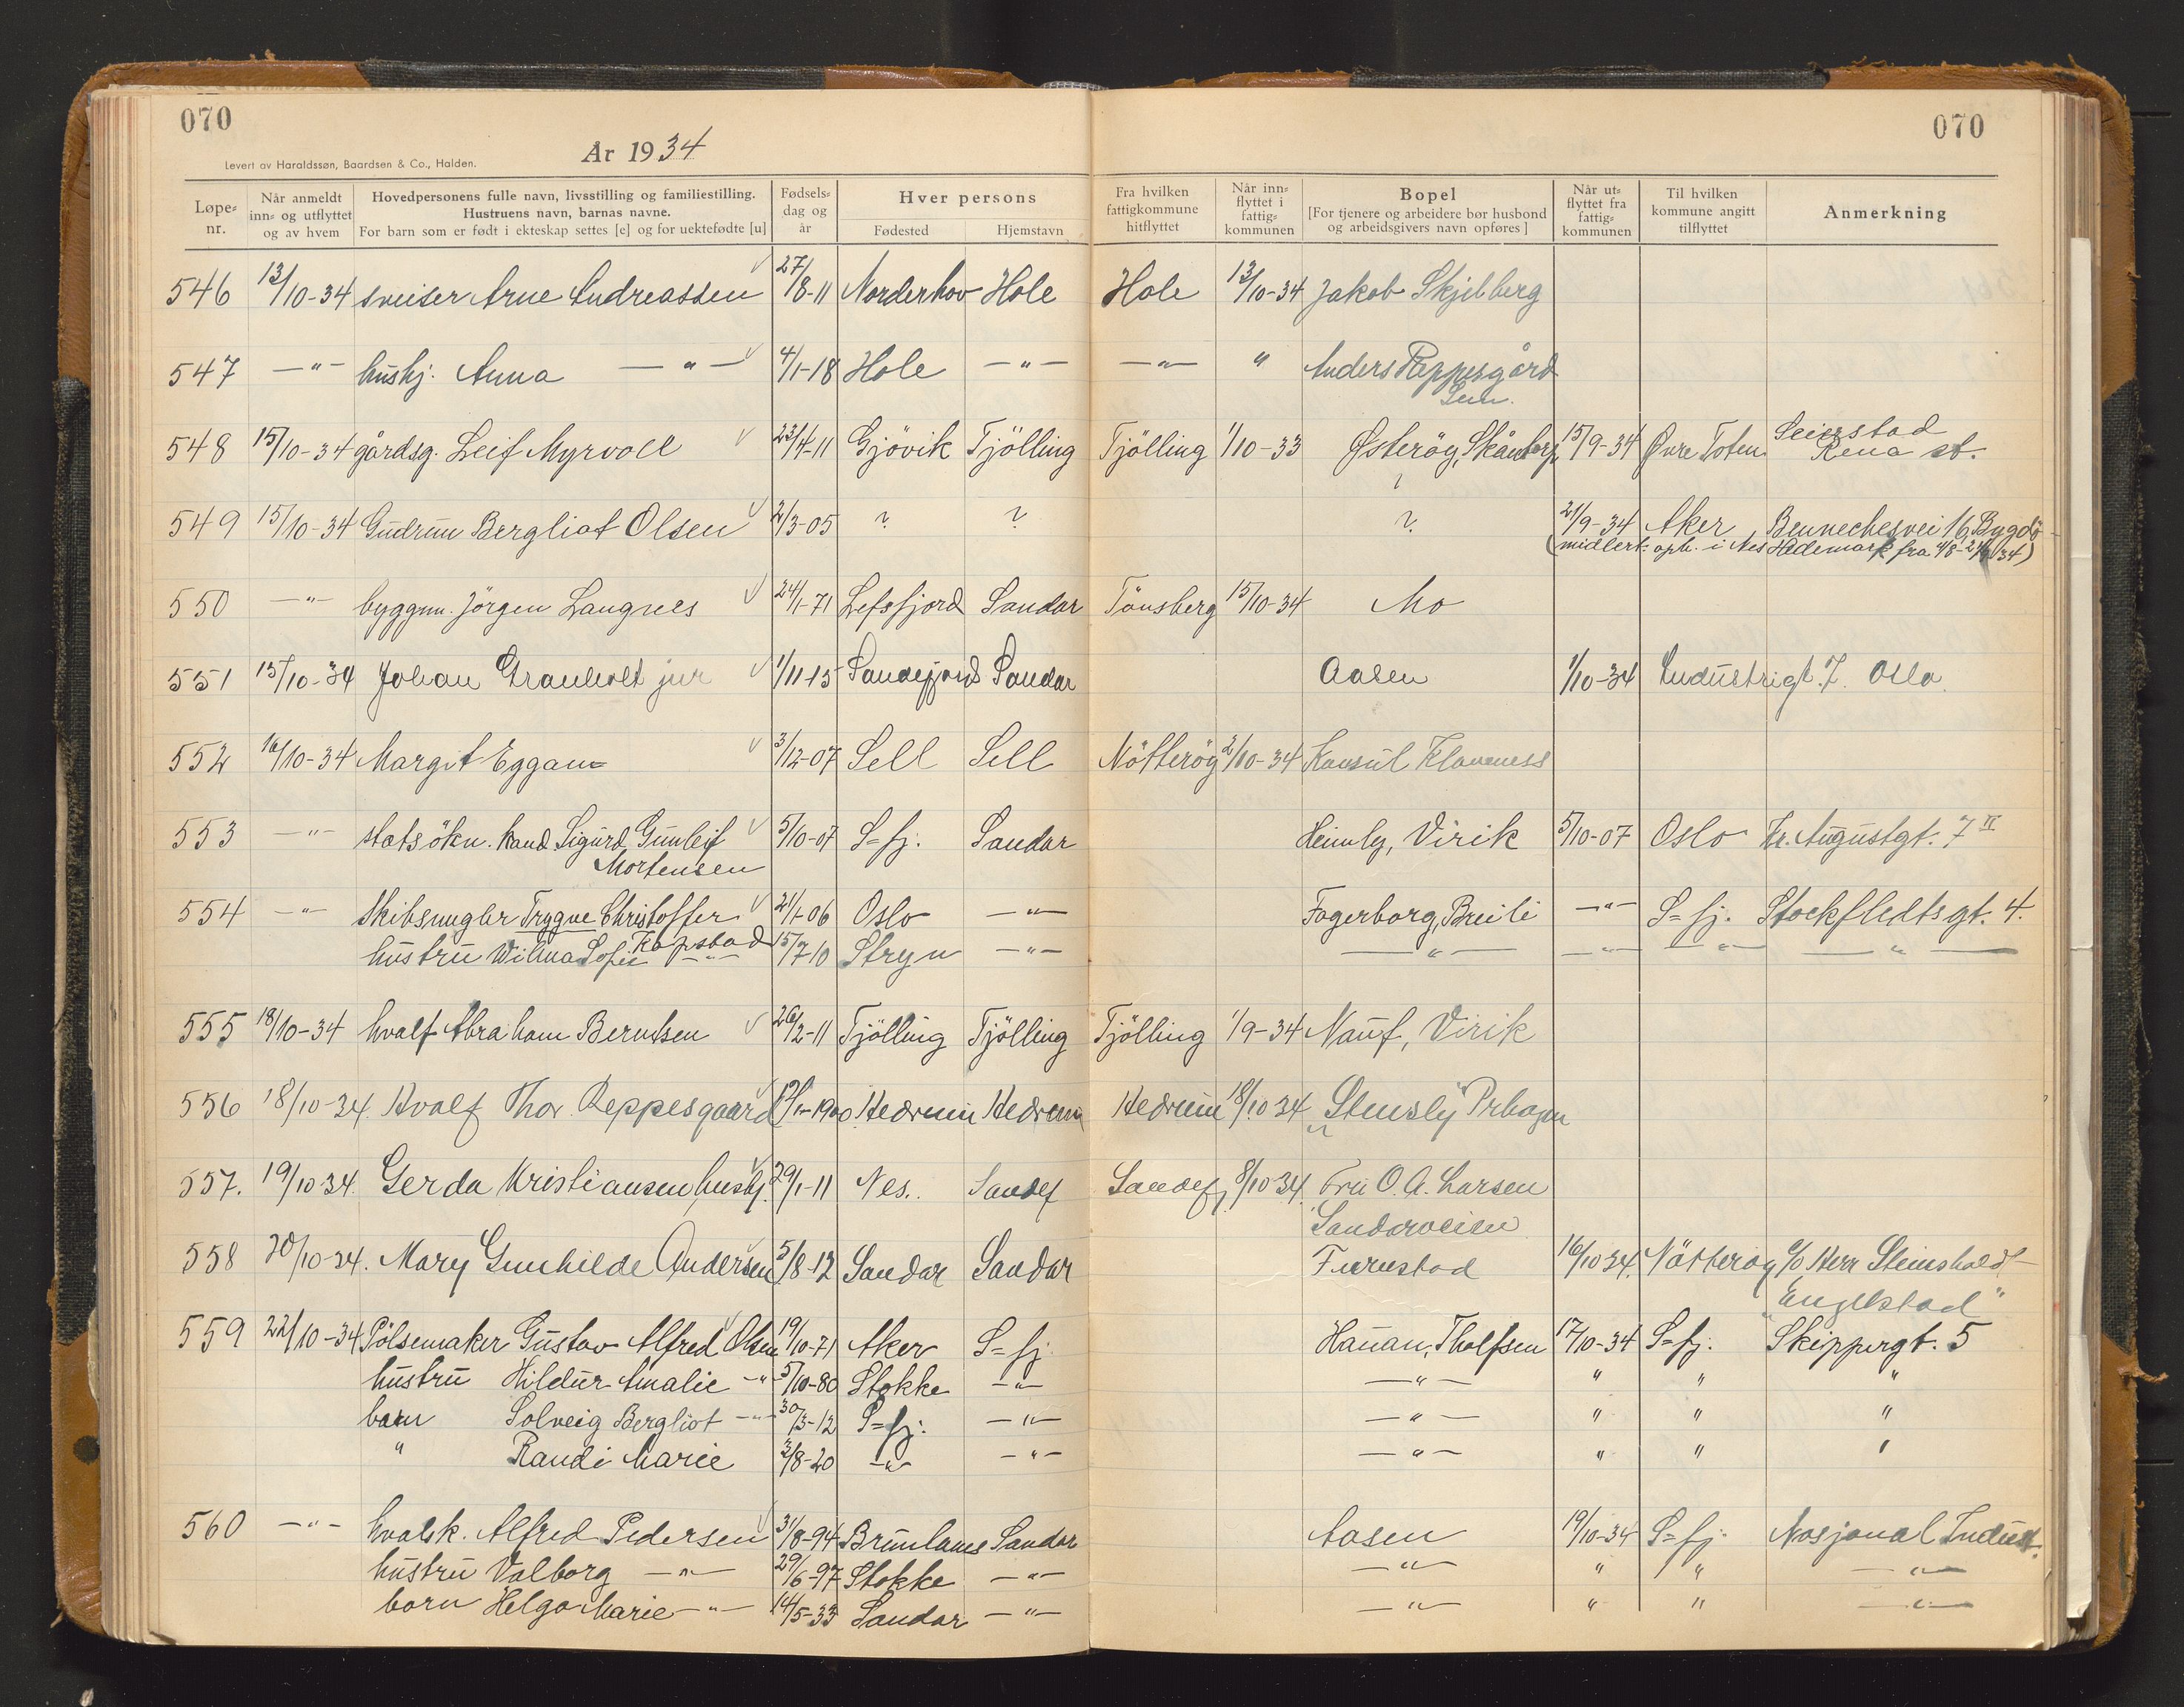 070
070
År 1934
Levert av Haraldssøn, Baardsen & Co., Halden.
Løpe-nr. | Når anmeldt inn- og utflyttet og av hvem | Hovedpersonens fulle navn, livsstilling og familiestilling. Hustruens navn, barnas navne. For barn som er født i ekteskap settes [e] og for uektefødte [u] | Fødsels-dag og år | Hver persons Fødested | Hjemstavn | Fra hvilken fattigkommune hitflyttet | Når inn-flyttet i fattig-kommunen | Bopel [For tjenere og arbeidere bør husbond og arbeidsgivers navn opføres] | Når ut-flyttet fra fattig-kommunen | Til hvilken kommune angitt tilflyttet | Anmerkning
546 13/10-34 sveiser Arne Andreassen 27/8-11 Norderhov Hole Hole 13/10-34 Jakob Skjelberg
547 -"- hushj. Anna -"- 4/1-18 Hole -"- -"- " Anders Reppesgård
Sem.
548 15/10-34 gårdsg. Leif Myrvoll 23/4-11 Gjövik Tjölling Tjölling 1/10-33 Østeröy, 15/9-34 Øvre Toten Seierstad
Rena st.
549 15/10-34 Gudrun Bergliot Olsen 2/3-05 ? ? ? 21/9-34 Aker Bennechesvei 16, Bygdö
(midlert. oph. i Nes Hedemark fra 4/8-21/9 34)
550 -"- byggm. Jörgen Langnes 24/1-71 Lefsfjord Sandar Tönsberg 15/10-34 Mo
551 15/10-34 Johan Granholt jur 1/11-15 Sandefjord Sandar Aasen 1/10-34 Industrigt. 7. Oslo.
552 16/10-34 Margit Eggan 3/12-07 Sell Sell Nötteröy 2/10-34 Konsul Klaveness
553 -"- statsökn. kand. Sigurd Gunleif 5/10-07 S=fj. Sandar Heimly, Virik 5/10-07 Oslo Kr. Augustgt. 7 II
Mortensen
554 -"- skibsmegler Trygve Christoffer 21/1-06 Oslo -"- Fagerborg, Breili -"- S=fj. Stockfledtsgt. 4.
Kopstad
hustru Wilma Sofie -"- 15/7-10 Stryn -"- -"- -"- -"- -"-
555 18/10-34 hvalf Abraham Berntsen 26/2-11 Tjölling Tjölling Tjölling 1/9-34 Nauf, Virik
556 18/10-34. Hvalf Thor Reppesgaard 1-1900 Hedrum Hedrum Hedrum 18/10 34 "Stensly"
557. 19/10-34. Gerda Kristiansen hushj. 29/1-11 Nes. Sandef Sandefj 8/10-34. Fru O. A. Larsen
Sandarveien
558 20/10-34. Mary Gunhilde Andersen 5/8-12 Sandar Sandar Furustad 16/10 34. Nötteröy c/o Herr Steinsholdt
"Engelstad"
559 22/10-34 Pölsemaker Gustav Alfred Olsen 19/10-71 Aker S=fj. Hauan, Tholfsen 17/10-34 S=fj. Skippergt. 5
hustru Hildur Amalie -"- 5/10-80 Stokke -"- -"- " " "
barn Solveig Bergliot -"- 30/3-12 S=fj. -"- -"- " " "
" Randi Marie 3/8-20 -"- -"- -"- " " "
560 -"- hvalsk. Alfred Pedersen 31/8-94 Brunlanes Sandar Aasen 19/10-34 S=fj. Nasjonal Indust.
hustru Valborg -"- 29/6-97 Stokke -"- -"- " " -"-
barn Helga Marie -"- 14/5-33 Sandar -"- -"- " " -"-